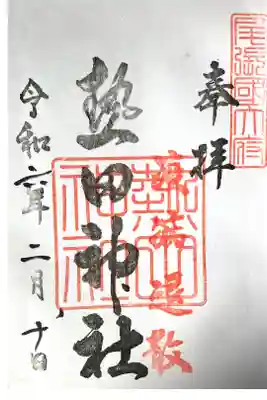 尾張國
奉拝
退散
熱田神社
熱田神社
令和 年二月十日